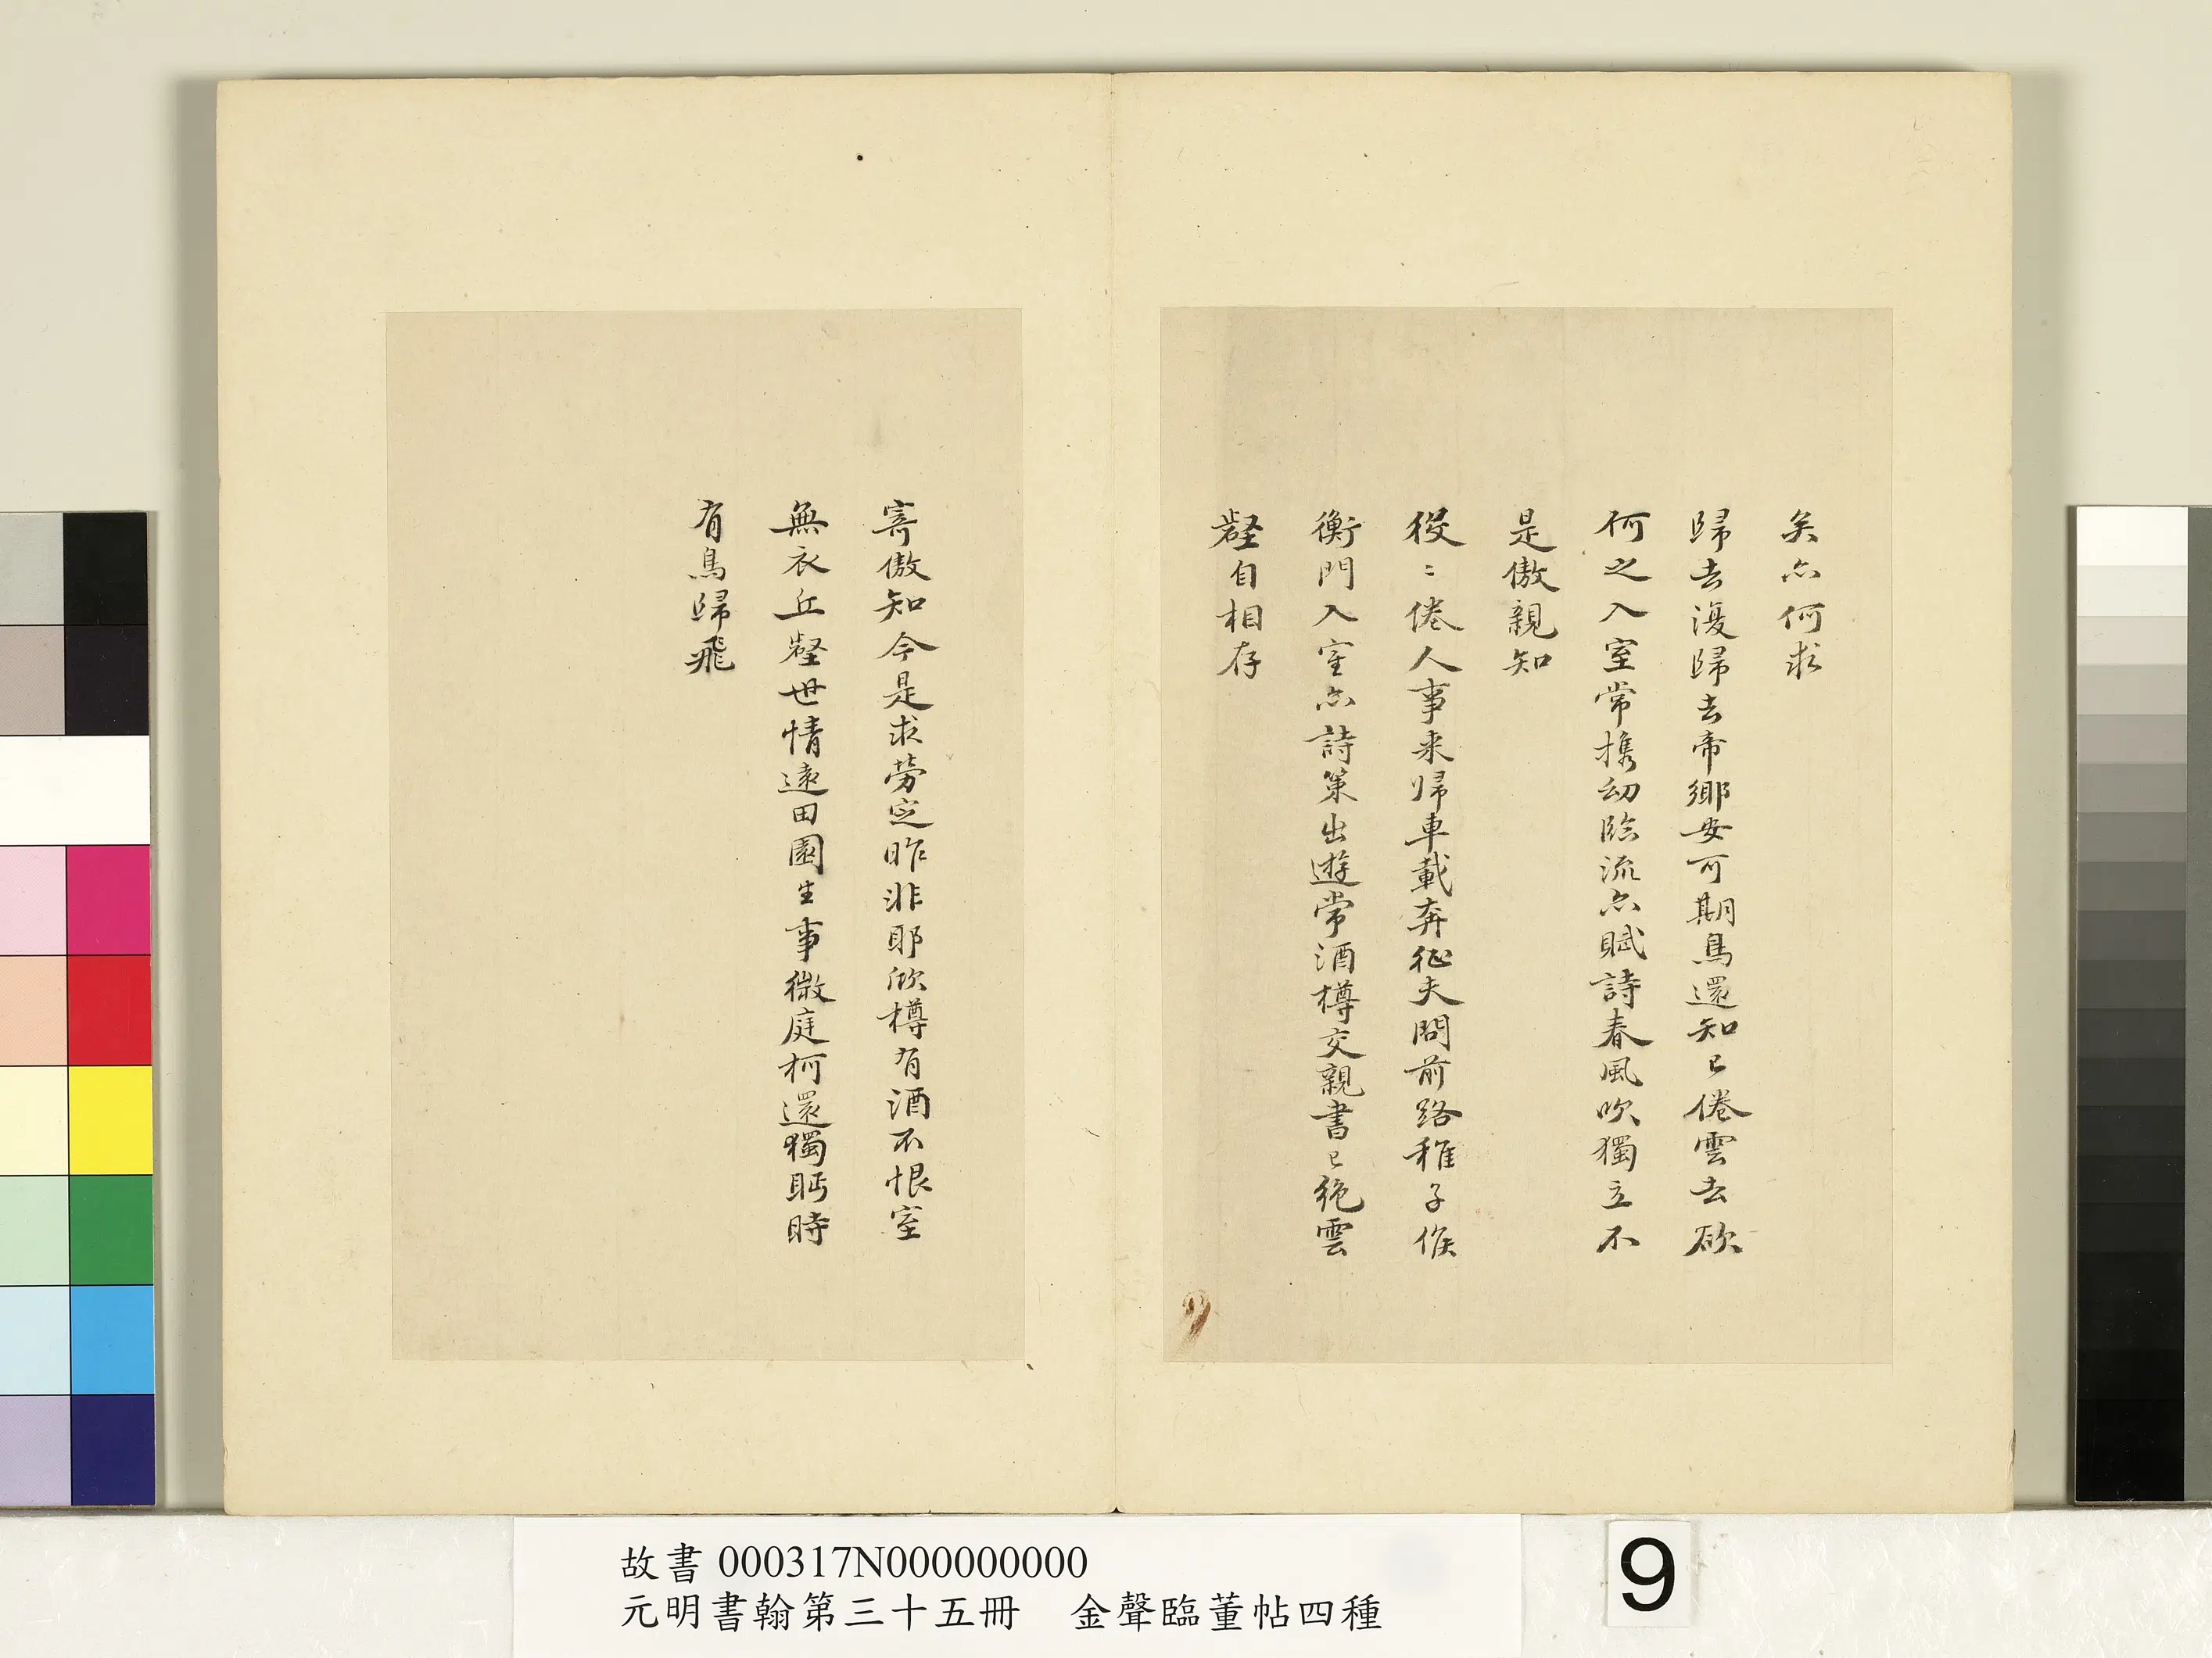 矣亦何求
歸去復歸去帝鄉安可期鳥還知已倦雲去欲
何之入室常携幼臨流亦賦詩春風吹獨立不
是傲親知
役〻倦人事来歸車載奔征夫問前路稚子候
衡門入室亦詩策出遊常酒樽交親書已絶雲
壑自相存
寄傲知今是求勞定昨非聊欣樽有酒不恨室
無衣丘壑世情遠田園生事微庭柯還獨眄時
有鳥歸飛
故書 000317N000000000
元明書翰第三十五冊　金聲臨董帖四種
9